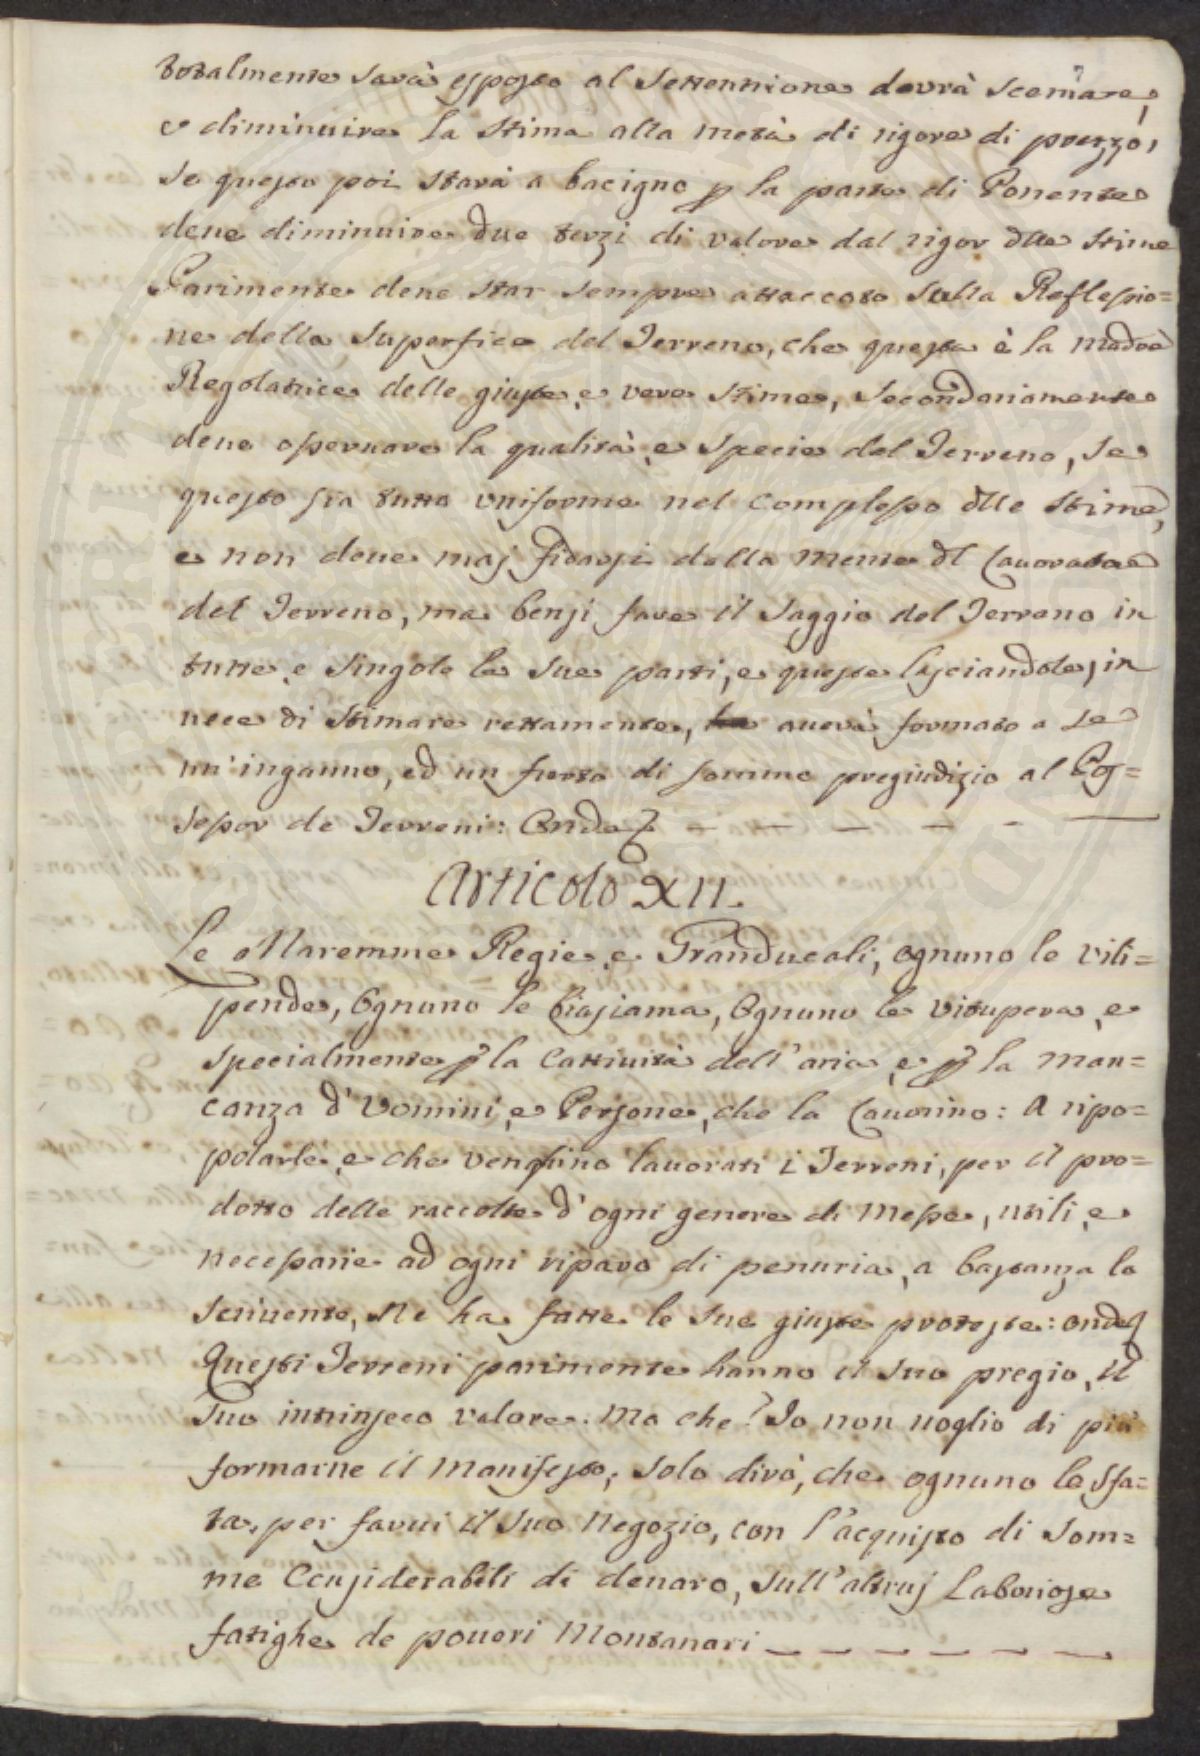 totalmente sarà esposto al Settentrione dovrà scemare,
e diminuire la stima alla metà di rigore di prezzo,
se questo poi starà a bacigno p la parte di Ponente
deue diminuire due terzi di valore dal rigor dlle stime
Parimente deue star sempre attaccato sulla Reflessio=
ne della Superfice del Terreno, che questa è la madre
Regolatrice delle giuste, e vere stime, secondariamente
deue osseruare la qualità, e specie del Terreno, se
questo sia tutto uniforme nel complesso dlle stime,
e non deue maj fidarsi della mente dl Lauoratore
del Terreno, ma bensi fare il saggio del Terreno in
tutte, e singole le sue parti, e queste lasciandole, in
uece di stimare rettamente, auerà formato a se
un'inganno, ed un furto di sommo pregiudizio al Pos=
sessor de Terreni: Onde
Articolo XII.
Le Maremme Regie, e Granducali, ognuno le vili=
pende, Ognuno le biasiama, Ognuno le vitupera, e
specialmente p la cattiuità dell'aria, e p la man=
canza d'Uomini, e Persone, che la Lauorino: A ripo=
polarle, e che venghino lauorati i Terreni, per il pro=
dotto delle raccolte d'ogni genere di Messe, utili, e
necessarie ad ogni riparo di penuria, a bastanza lo
scriuente, ne ha fatte le sue giuste proteste: onde
Questi Terreni parimente hanno il suo pregio, il
suo intrinseco valore. Ma che? Io non uoglio di più
formarne il Manifesto, solo dirò, che ognuno le sfa=
ta, per farui il suo Negozio, con l'acquisto di som=
me Considerabili di denaro, sull'altruj Laboriose
fatighe de poueri Montanari